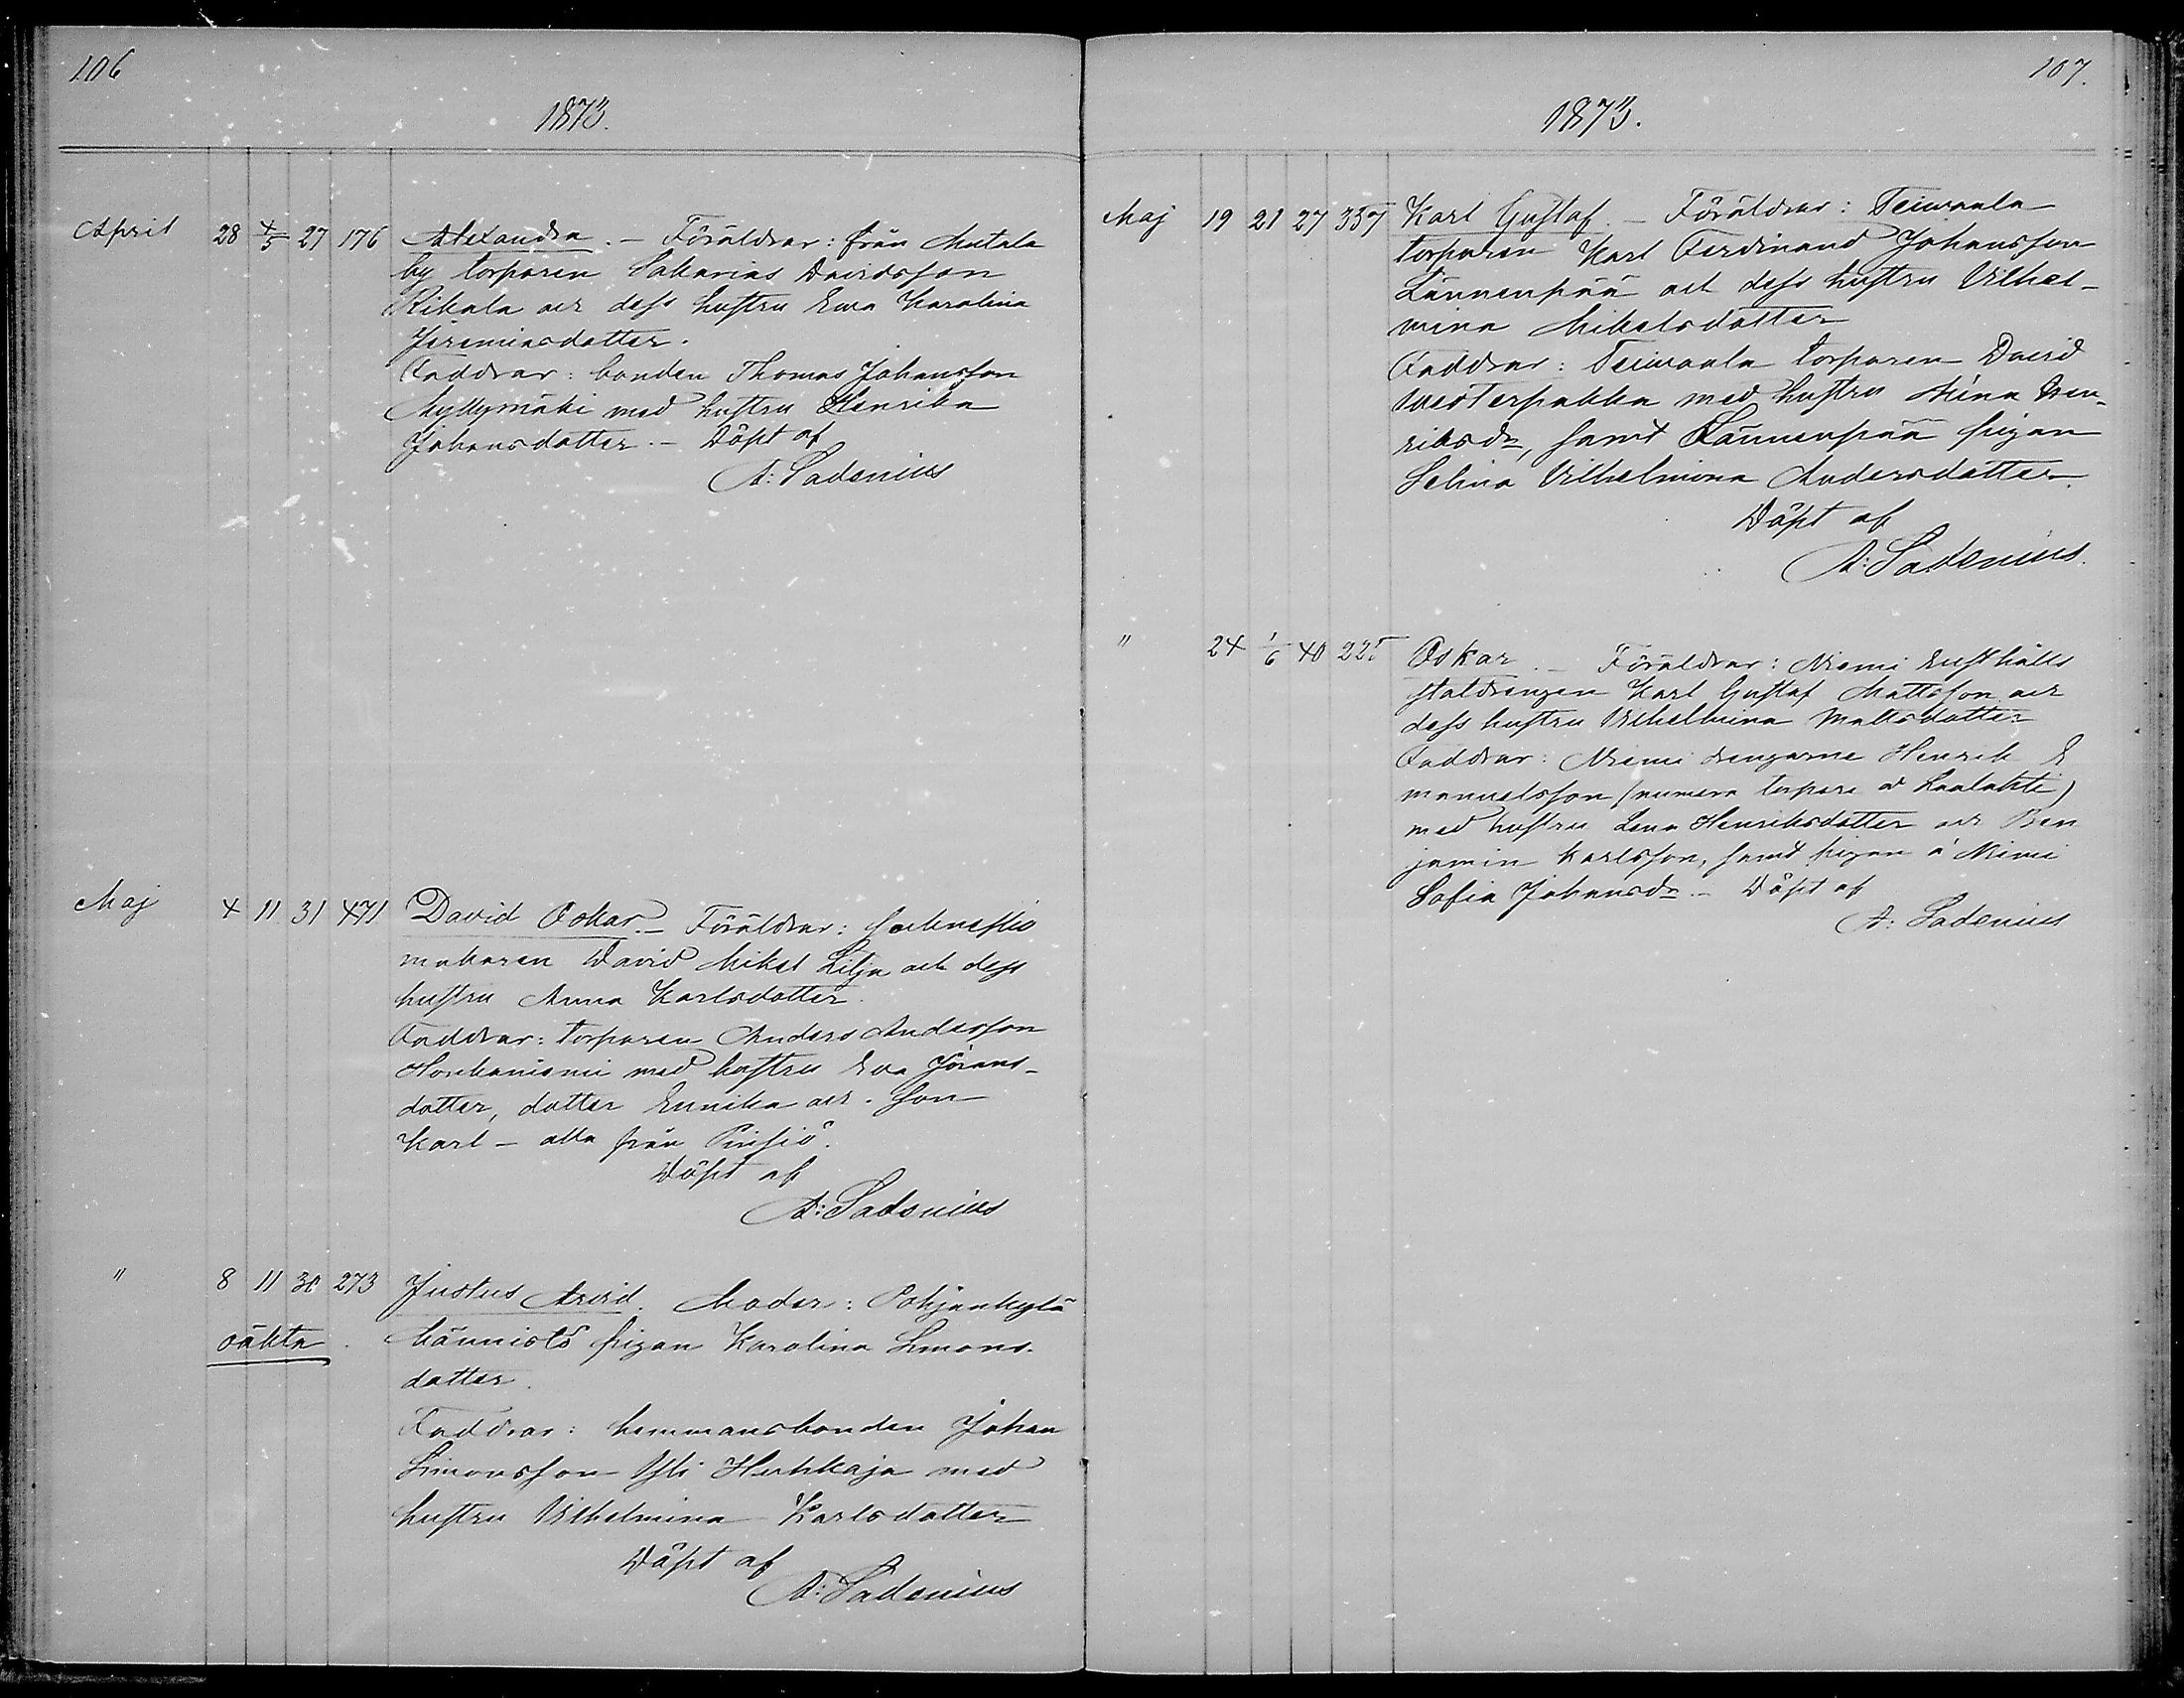 106
1873.
April 28 4/5 27 176 Alexandra. — Föräldrar: från Matala
by torparen Sakarias Davidsson
Rikala och dess hustru Eva Karolina
Jeremiasdotter.
Faddrar: bonden Thomas Johansson
Myllymäki med hustru Henrika
Johansdotter. — Döpt af
A: Sadenius
Maj 4 11 31 471 David Oskar. — Föräldrar:
makaren David Mikel Lilja och dess
hustru Anna Karlsdotter.
Faddrar: torparen Anders Andersson
med hustru Eva Jörans-
dotter, dotter Eunika och son
Karl — alla från Pinsiö.
Döpt af
A: Sadenius
" 8 11 30 273 Justus Arvid. Moder: Pohjankylä
oäkta. Männistö pigan Karolina Simons-
dotter.
Faddrar: hemmansbonden Johan
Simonsson Yli Huhkaja med
hustru Vilhelmina Karlsdotter
Döpt af
A: Sadenius
107.
1873.
Maj 19 21 27 357 Karl Gustaf. — Föräldrar: Teivaala
torparen Karl Ferdinand Johansson
Lännenpää och dess hustru Vilhel-
mina Mikelsdotter
Faddrar: Teivaala torparen David
Westerpakka med hustru Mina Hen-
riksdr, samt Lännenpää pigan
Selina Vilhelmina Andersdotter.
Döpt af
A: Sadenius.
" 24 1/6 40 225 Oskar. — Föräldrar: Niemi rusthålls
staldrengen Karl Gustaf Mattsson och
dess hustru Vilhelmina Mattsdotter
Faddrar: Niemi drengarne Henrik E
manuelsson (numera torpare å Laalahti)
med hustru Lena Henriksdotter och Ben
jamin Karlsson, samt pigan å Niemi
Sofia Johansdr. — Döpt af
A: Sadenius